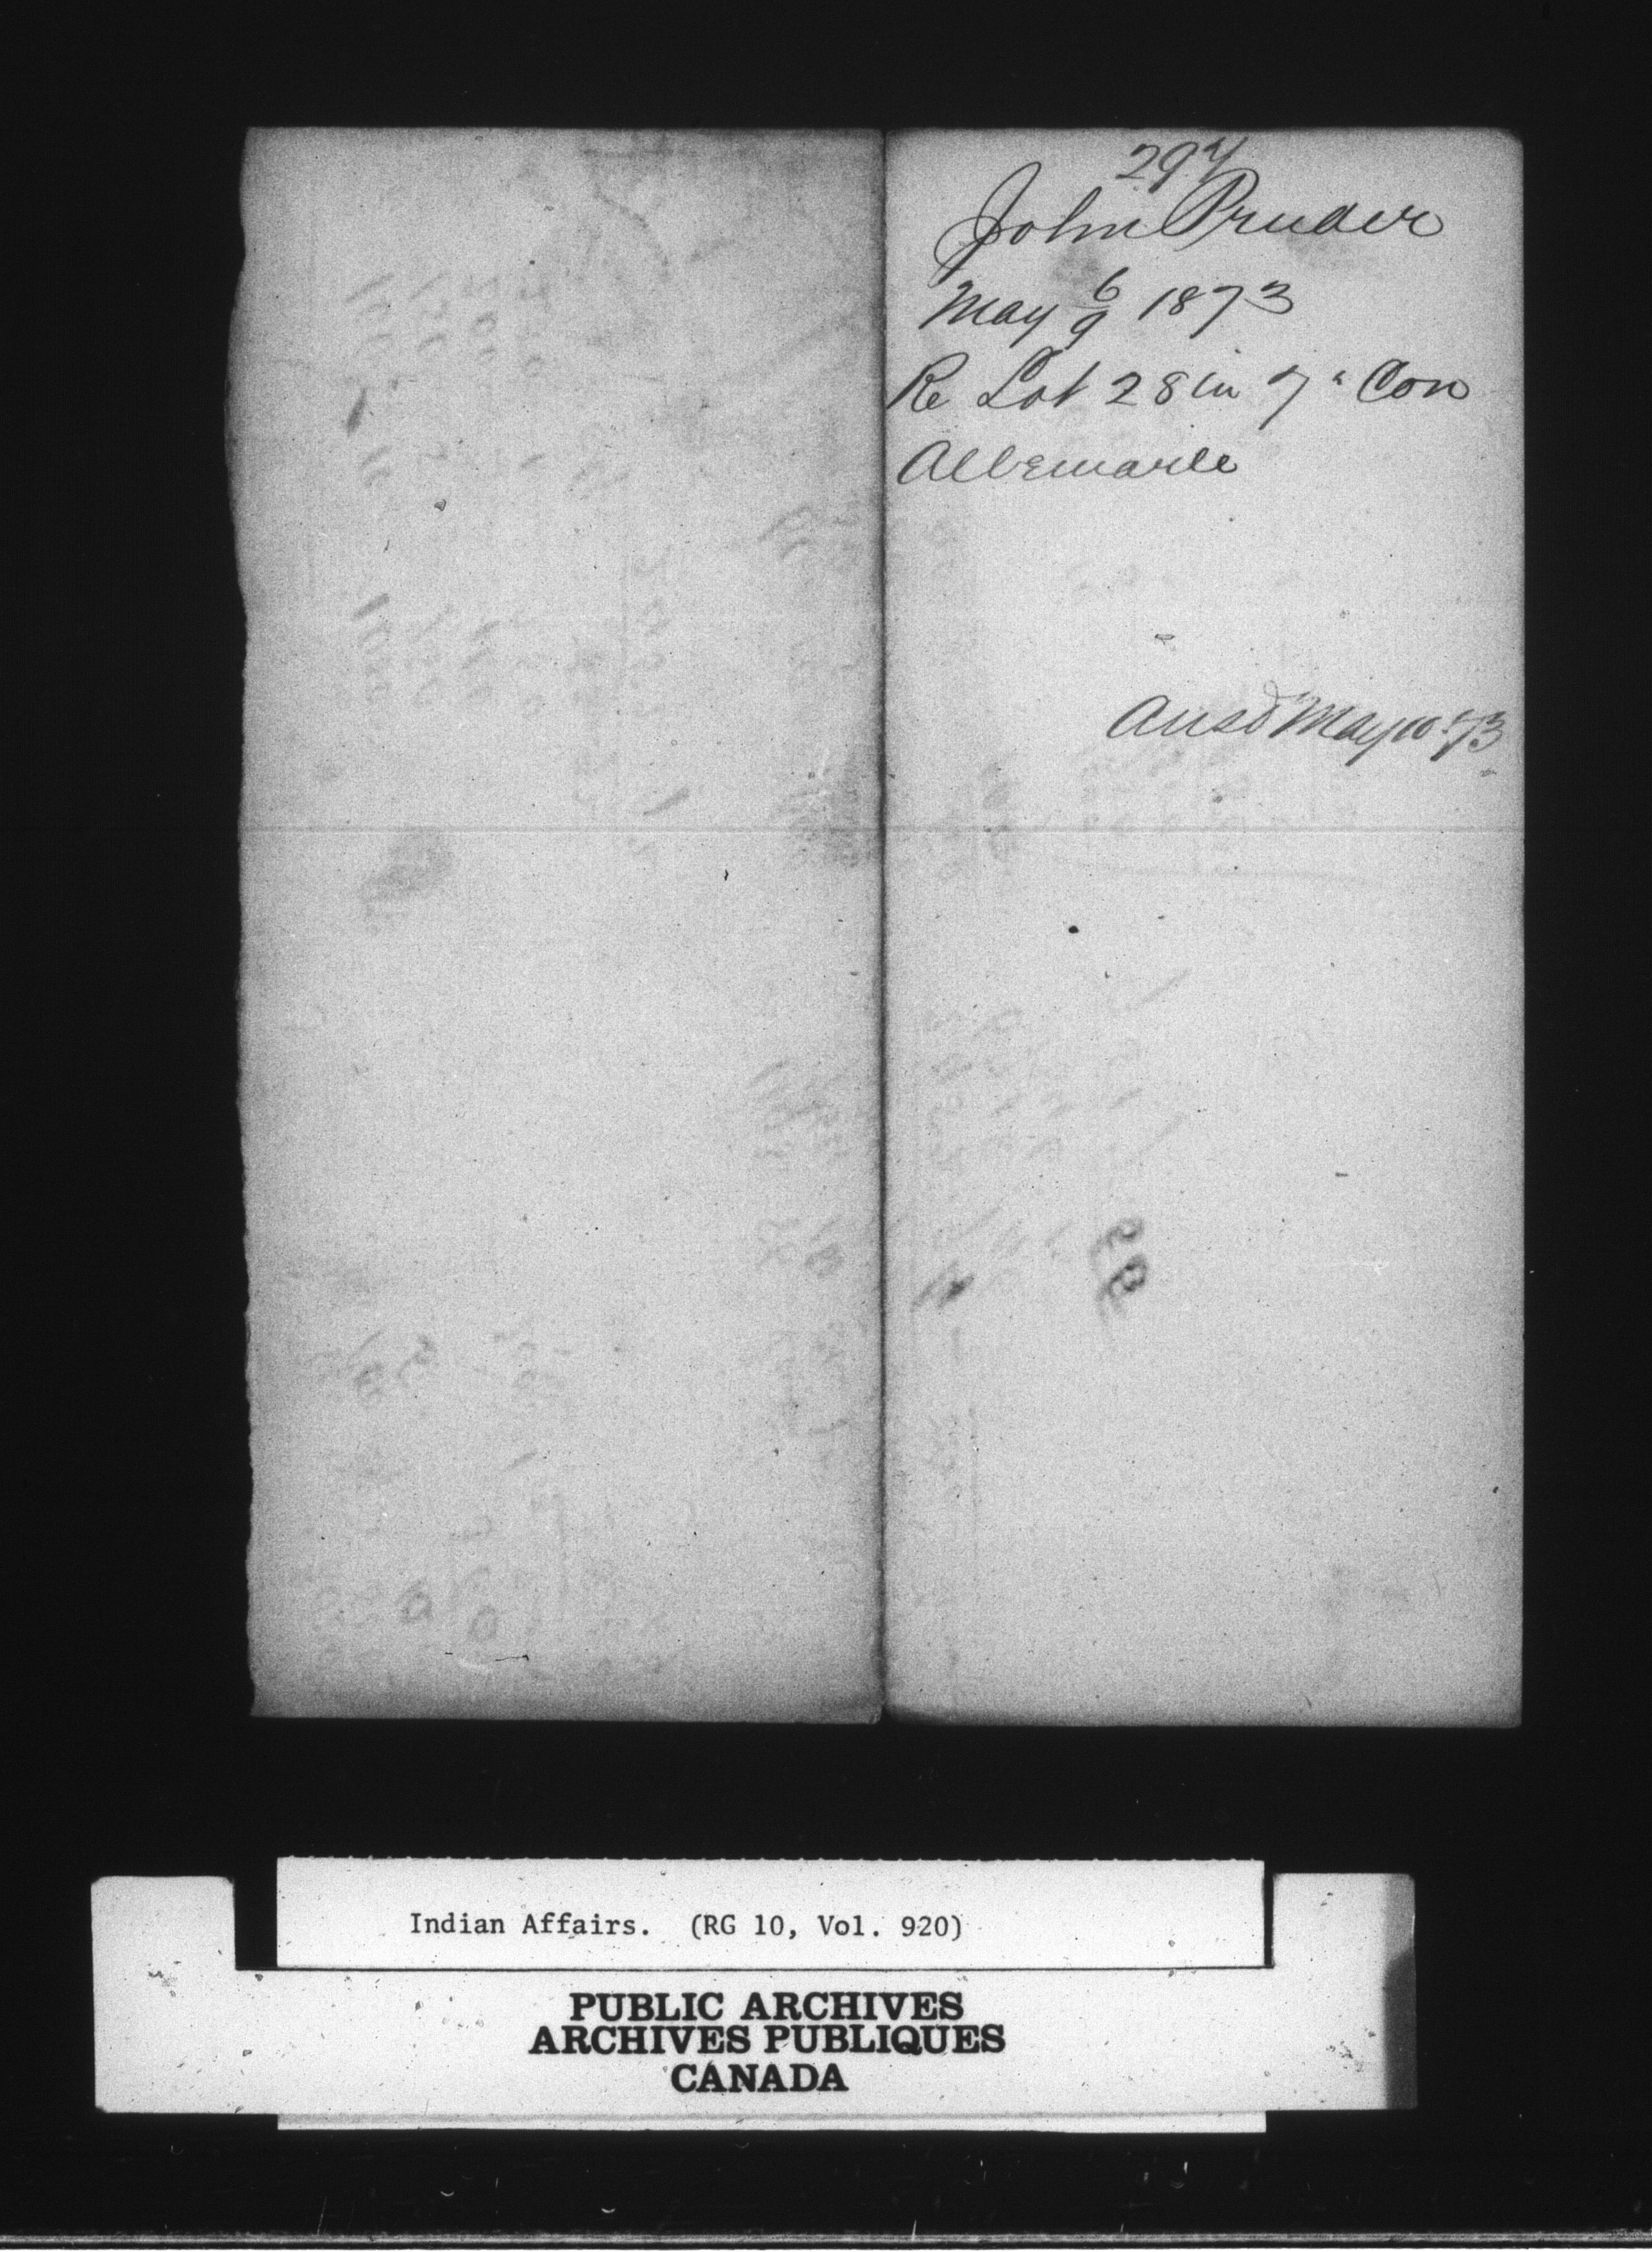 297
John Pruder
May 6/9 1873
Re Lot 28 in 7" Con
Albemarle
Ansd May 10 '73
Indian Affairs. (RG 10, Vol. 920)
PUBLIC ARCHIVES
ARCHIVES PUBLIQUES
CANADA